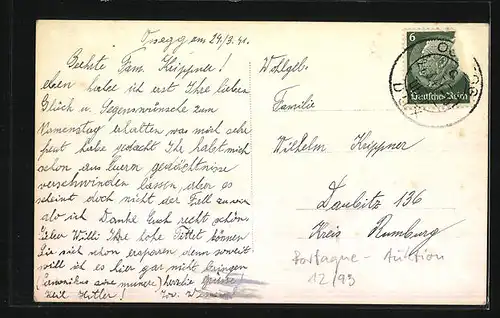 Ossegg am 24/3. 41.
Geehrte Fam. Keippner!
eben habe ich erst Ihre lieben
Glück u. Segenswünsche zum
Namenstag erhalten was mich sehr
freut habe gedacht Ihr habt mich
schon aus Euern gedächtnisse
verschwinden lassen, aber es
scheint doch nicht der Fall zu
also ich Danke Euch recht schön.
Lieber Willi Ihre hohe Titel können
Sie sich schon ersparen denn soweit
will ich es hier gar nicht bringen
herzliche Grüsse!
Heil Hitler!
Wohlgeb.
Familie
Wilhelm Keippner
Daubitz 136
Kreis Rumburg
6
Deutsches Reich
Auktion
12/93